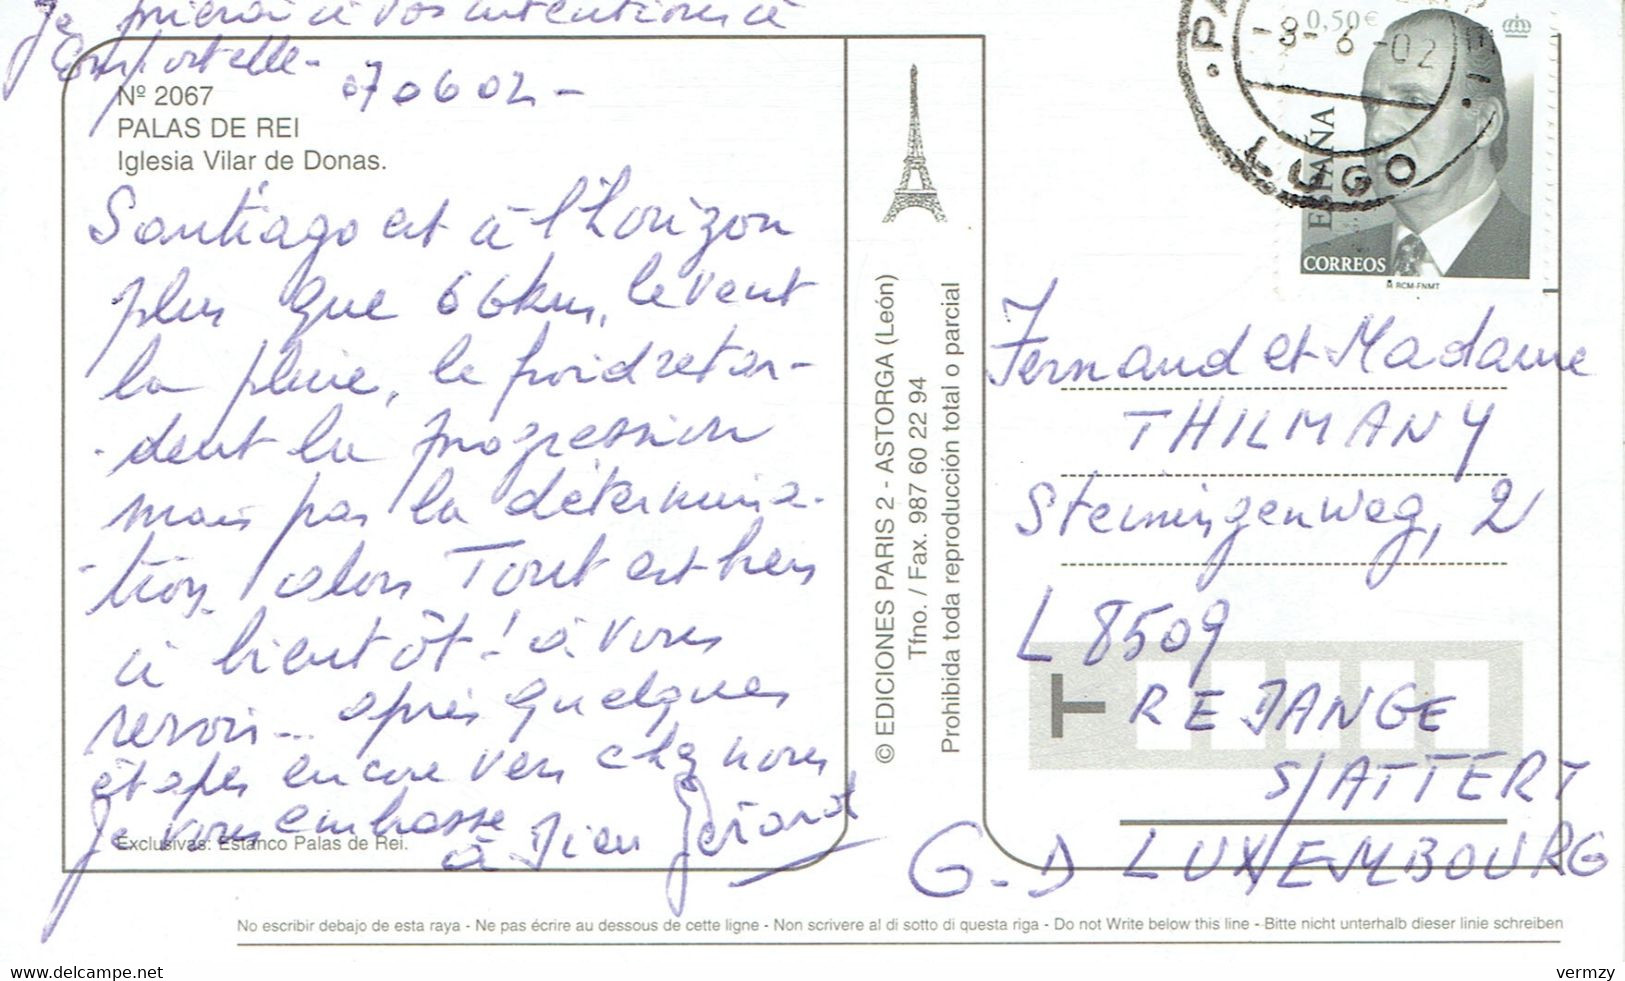 Je prierai à vos intentions à
Compostelle -
070602 -
Nº 2067
PALAS DE REI
Iglesia Vilar de Donas.
Santiago est à l'horizon
plus que 66 km, le vent
la pluie, le froid retar-
-dent la progression
mais pas la détermina-
-tion, alors Tout est bien
à bientôt! à vous
revoir... après quelques
étapes encore vers chez nous
Je vous embrasse
à Dieu Gérard
Exclusivas: Estanco Palas de Rei.
© EDICIONES PARIS 2 - ASTORGA (León)
Tfno. / Fax. 987 60 22 94
Prohibida toda reproducción total o parcial
0,50€
ESPAÑA
CORREOS
RCM-FNMT
-8-6-02
LUGO
Fernand et Madame
THILMANY
Steiningenweg, 2
L 8509
T
REDANGE
S/ATTERT
G.D LUXEMBOURG
No escribir debajo de esta raya - Ne pas écrire au dessous de cette ligne - Non scrivere al di sotto di questa riga - Do not Write below this line - Bitte nicht unterhalb dieser linie schreiben
vermzy